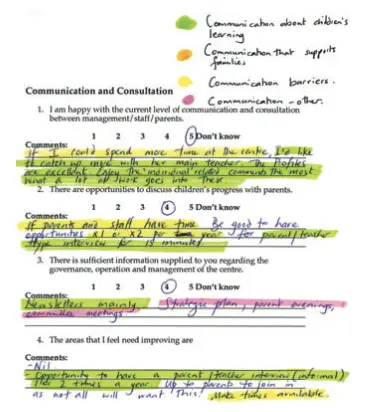 Communication about children's
learning
Communication that supports
families
Communication barriers.
Communication - other.
Communication and Consultation
1. I am happy with the current level of communication and consultation
between management/staff/parents.
1 2 3 4 5 Don't know
Comments:
If I could spend more time at the centre, I'd like
to catch up more with her main teacher. The Profiles
are excellent. Enjoy the individual related comments the most
what a lot of work goes into these.
2. There are opportunities to discuss children's progress with parents.
1 2 3 4 5 Don't know
Comments:
If parents and staff have time. Be good to have
opportunities x1 or x2 per year for parent/teacher
type interview for 15 minutes
3. There is sufficient information supplied to you regarding the
governance, operation and management of the centre.
1 2 3 4 5 Don't know
Comments:
Newsletters mainly, Strategic plan, parent evenings,
committee meetings.
4. The areas that I feel need improving are
Comments:
- Nil
- Opportunity to have a parent/teacher interview (informal)
2 times a year. Up to parents to join in
as not all will want this! Make times available.